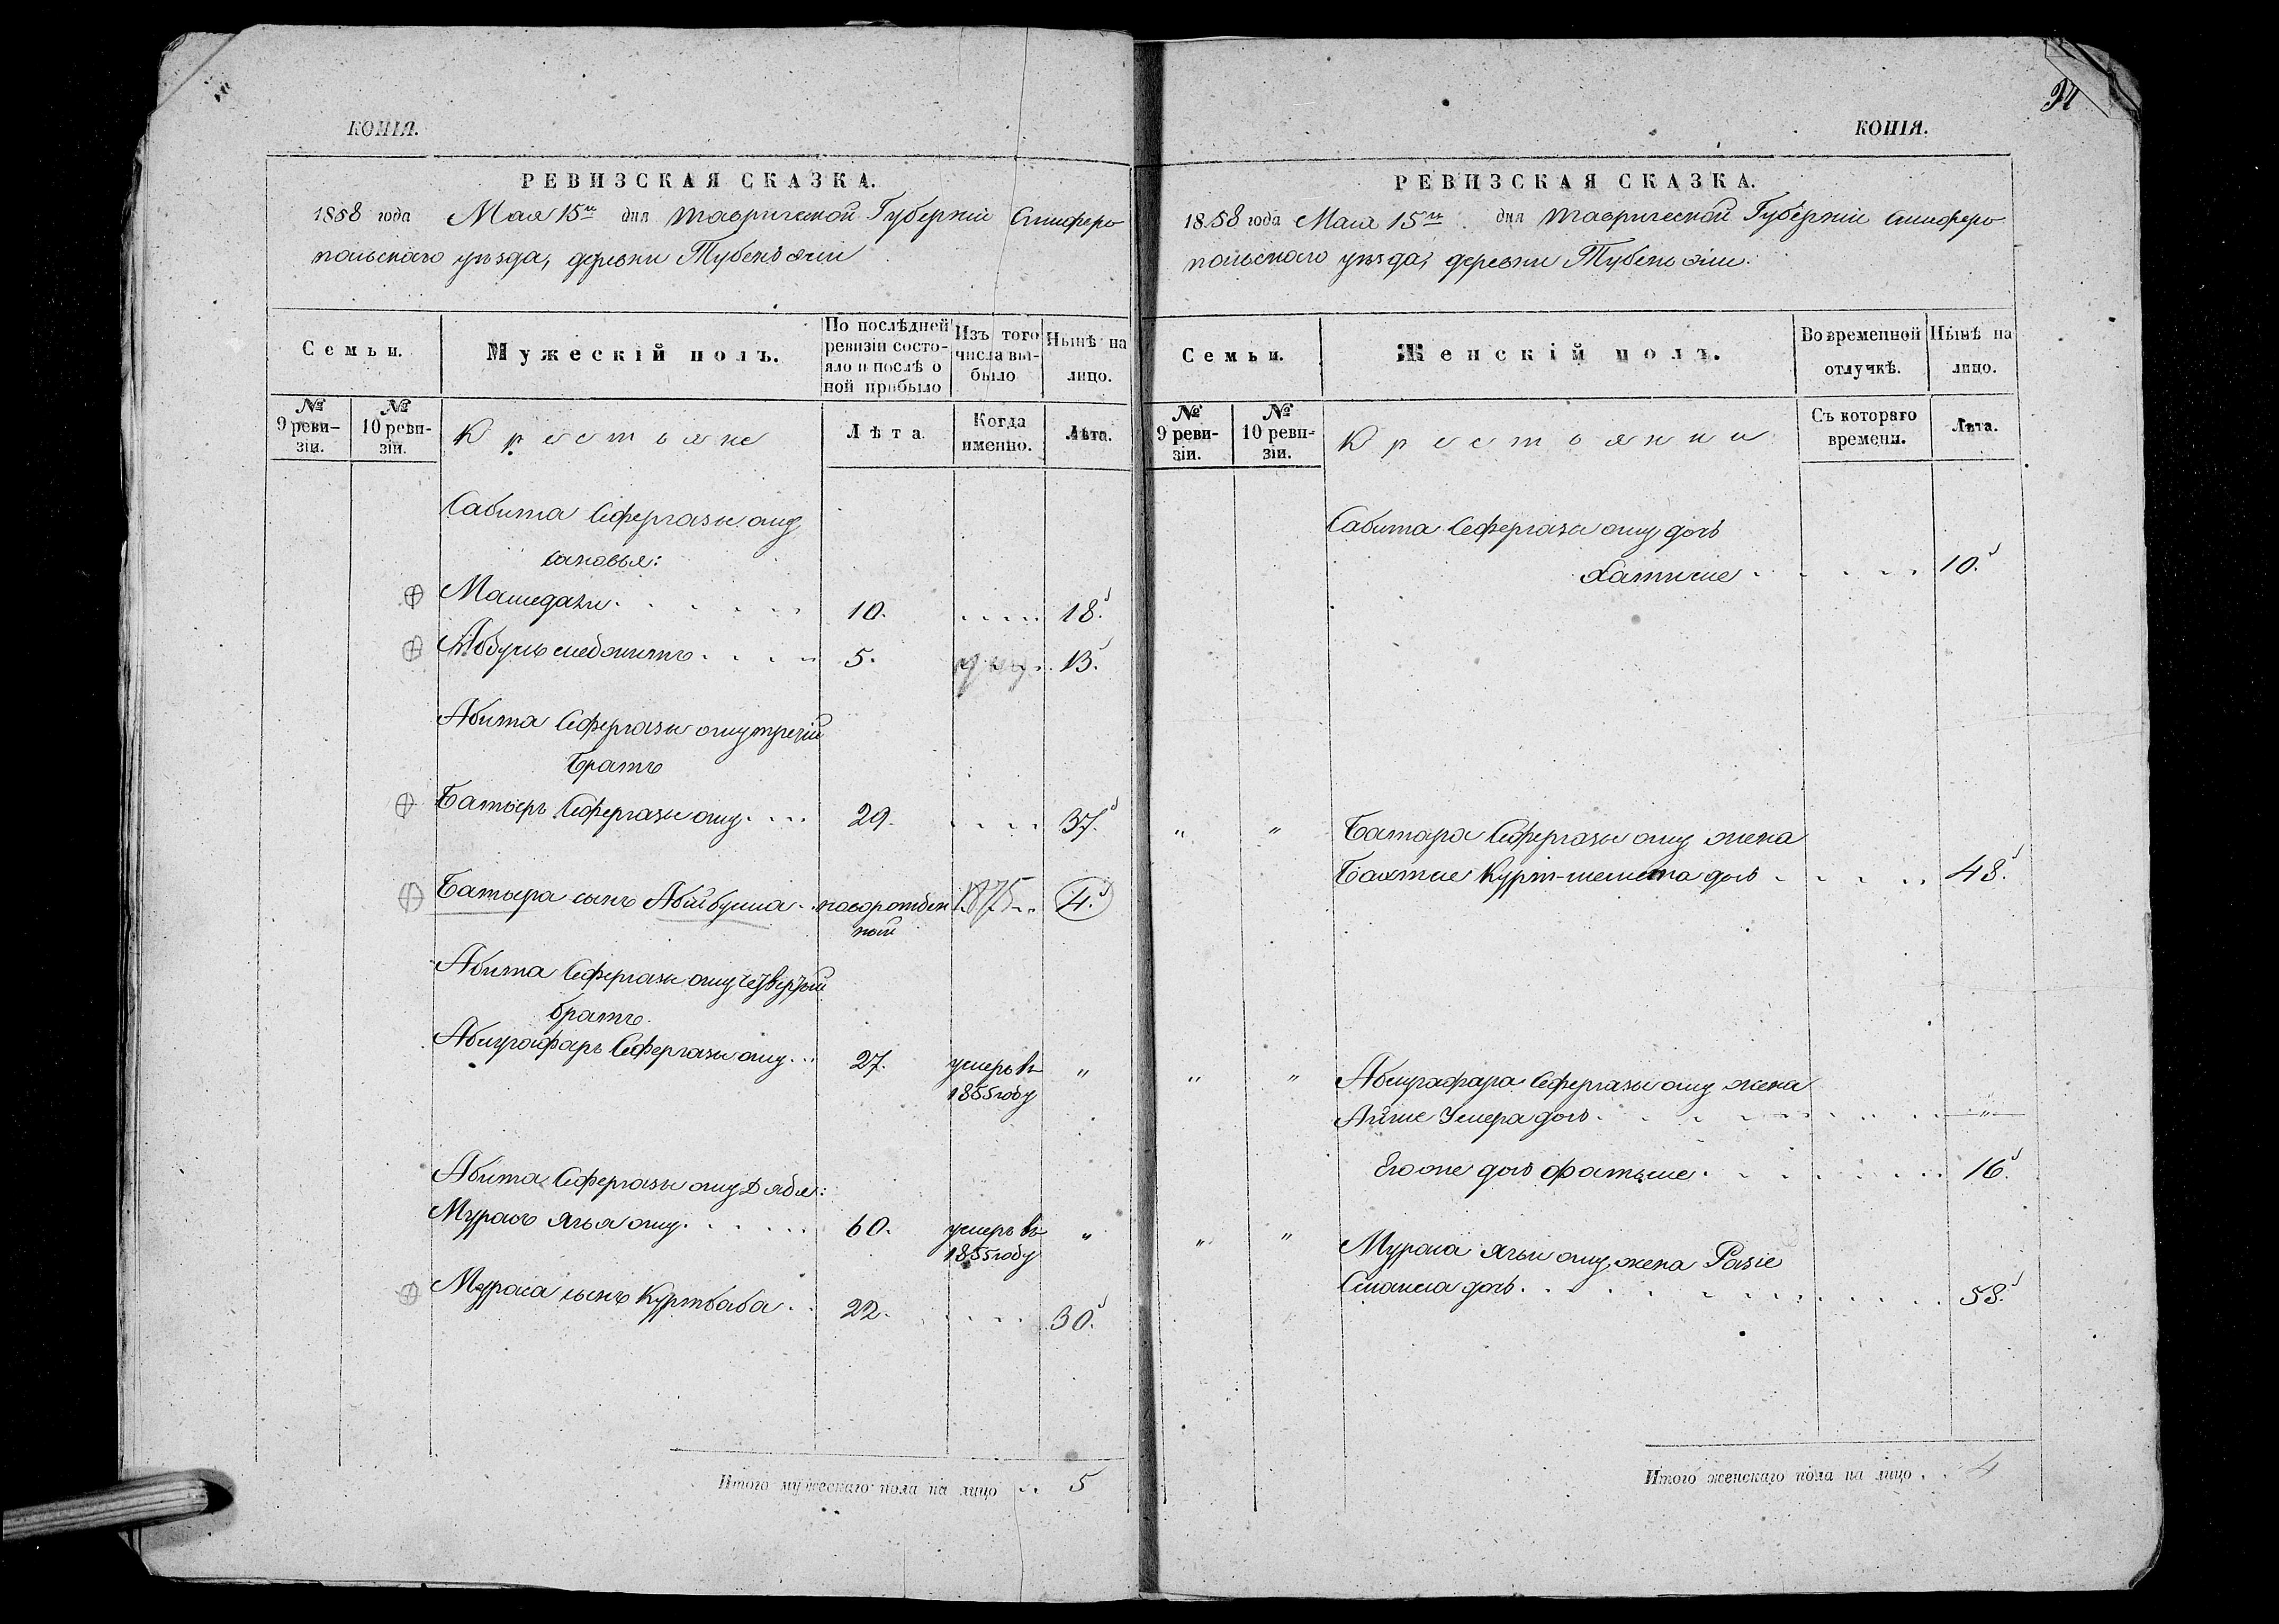 КОПІЯ.
РЕВИЗСКАЯ СКАЗКА.
1858 года Мая 15го дня Таврической Губерніи Симферо
польскаго уѣзда, деревни Тубенъ эли
Семьи.
Мужескій полъ.
По послѣдней
ревизіи состо-
яло и послѣ о
ной прибыло
Изъ того
числа вы-
было
Нынѣ на
лицо.
№
9 реви-
зіи.
№
10 реви-
зіи.
Крестьяне
Лѣта
Когда
именно.
Лѣта.
Сабита Сефергазы оглу
сыновья:
10. 18.
5. 13.
Абита Сефергазы оглу третій
Братъ
Батыръ Сефергазы оглу 29. 37.
Батыра сынъ новорожден 1875 4.
ный
Абита Сефергазы оглу четвертый
братъ.
Абдугафаръ Сефергазы оглу 27. умеръ въ "
1855 году
Абита Сефергазы оглу Дядя:
Мураса Ягья оглу 60. умеръ въ "
1855 году
Мураса сынъ Куртбаба 22. 30.
Итого мужескаго пола на лицо 5
КОПІЯ.
РЕВИЗСКАЯ СКАЗКА.
1858 года Мая 15го дня Таврической Губерніи Симферо
польскаго уѣзда, деревни Тубенъ эли.
Семьи.
Женскій полъ.
Во временной
отлучкѣ.
Нынѣ на
лицо.
№
9 реви-
зіи.
№
10 реви-
зіи.
Крестьянки
Съ котораго
времени.
Лѣта.
Сабита Сефергазы оглу дочь
Хатидже 10.
" " Батыра Сефергазы оглу жена
дочь 48.
" " Абдугафара Сефергазы оглу жена
Айше Умера дочь "
Его же дочь Фатьме 16.
" " Мураса Ягьи оглу жена Разіе
дочь 58.
Итого женскаго пола на лицо 4